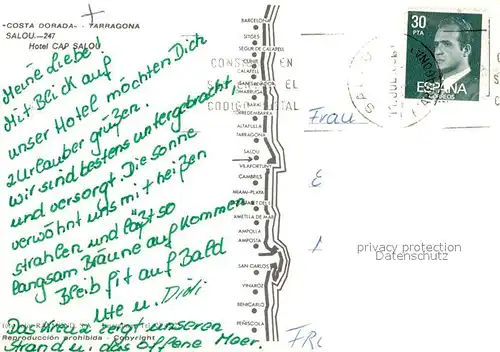 «COSTA DORADA» - TARRAGONA
SALOU.—247
Hotel CAP SALOU
Meine Liebe!
Mit Blick auf
unser Hotel möchten Dich
2 Urlauber grüßen.
Wir sind bestens untergebracht,
und versorgt. Die Sonne
verwöhnt uns mit heißen
Strahlen und läßt so
langsam Bräune auf kommen
Bleib fit auf Bald
Ute u. Didi
Das Kreuz zeigt unseren
Strand u. das offene Meer.
Reproducción prohibida - Copyright
BARCELONA
SITGES
SEGUR DE CALAFELL
CALAFELL
TORREDEMBARRA
ALTAFULLA
TARRAGONA
SALOU
VILAFORTUNY
CAMBRILS
MIAMI-PLAYA
AMETLLA DE MAR
AMPOLLA
AMPOSTA
SAN CARLOS
VINAROZ
BENICARLO
PEÑISCOLA
30
PTA
ESPAÑA
CORREOS
Frau
privacy protection
Datenschutz